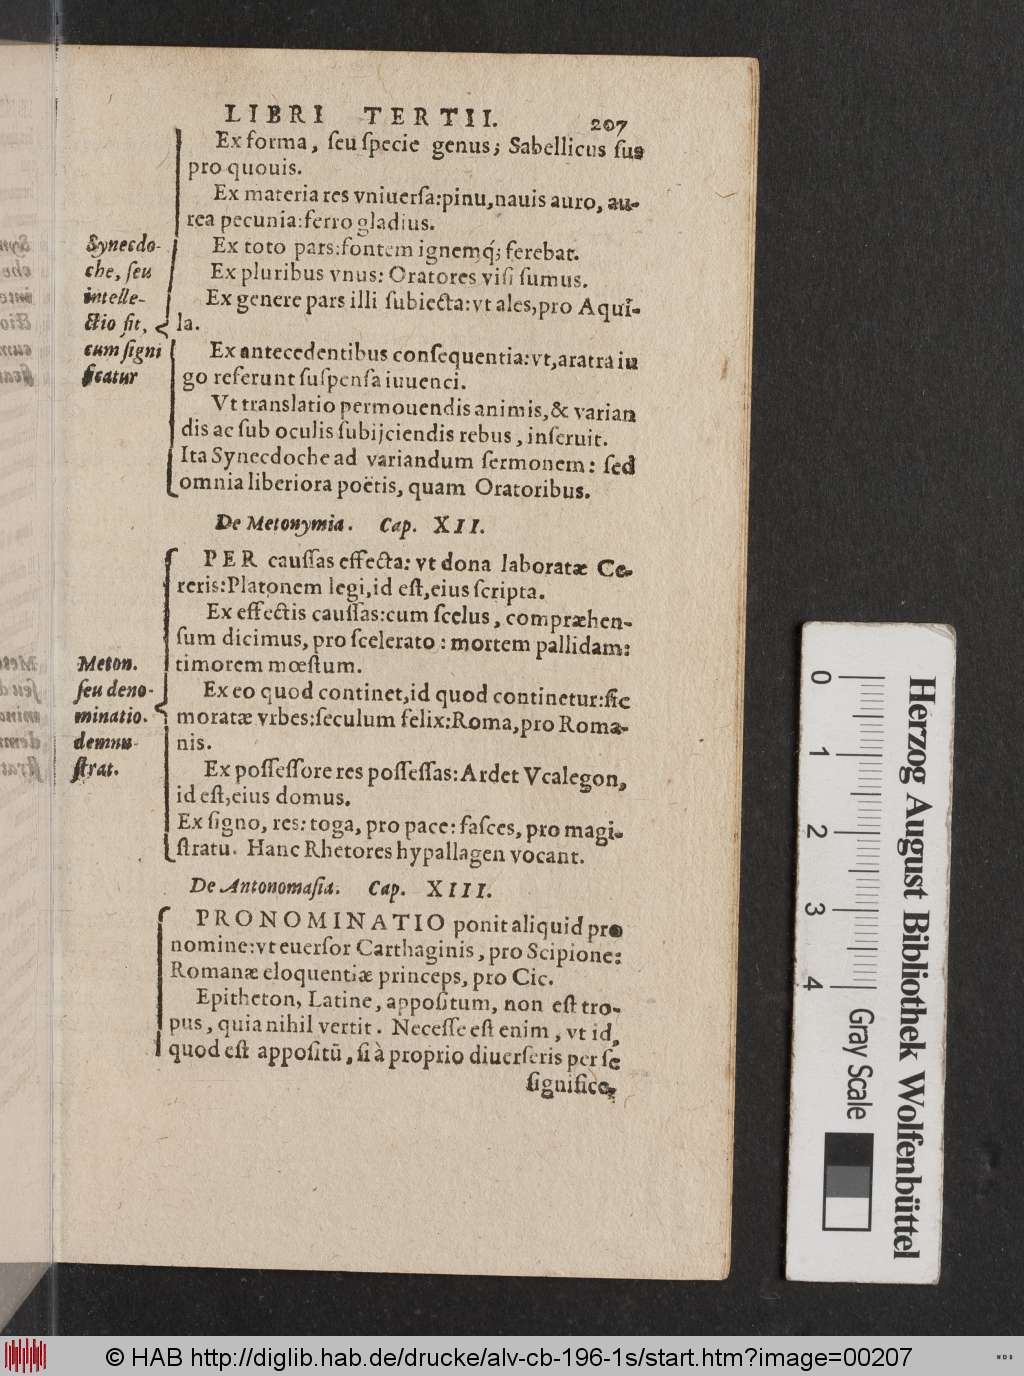 LIBRI TERTII. 207
Ex forma, ſeu ſpecie genus; Sabellicus ſus
pro quouis.
Ex materia res vniuerſa: pinu, nauis auro, au-
rea pecunia: ferro gladius.
Synecdo-
che, ſeu
intelle-
ctio fit,
cum ſigni
ficatur
Ex toto pars: fontem ignemq́; ferebat.
Ex pluribus vnus: Oratores viſi ſumus.
Ex genere pars illi ſubiecta: vt ales, pro Aqui-
la.
Ex antecedentibus conſequentia: vt, aratra iu
go referunt ſuſpenſa iuuenci.
Vt translatio permouendis animis, & varian
dis ac ſub oculis ſubijciendis rebus, inſeruit.
Ita Synecdoche ad variandum ſermonem: ſed
omnia liberiora poëtis, quam Oratoribus.
De Metonymia. Cap. XII.
PER cauſſas effecta: vt dona laboratæ Ce-
reris: Platonem legi, id eſt, eius ſcripta.
Ex effectis cauſſas: cum ſcelus, compræhen-
ſum dicimus, pro ſcelerato: mortem pallidam:
timorem mœſtum.
Meton.
ſeu deno-
minatio.
demnu-
ſtrat.
Ex eo quod continet, id quod continetur: ſic
moratæ vrbes: ſeculum felix: Roma, pro Roma-
nis.
Ex poſſeſſore res poſſeſſas: Ardet Vcalegon,
id eſt, eius domus.
Ex ſigno, res: toga, pro pace: faſces, pro magi-
ſtratu. Hanc Rhetores hypallagen vocant.
De Antonomaſia. Cap. XIII.
PRONOMINATIO ponit aliquid pro
nomine: vt euerſor Carthaginis, pro Scipione:
Romanæ eloquentiæ princeps, pro Cic.
Epitheton, Latine, appoſitum, non eſt tro-
pus, quia nihil vertit. Neceſſe eſt enim, vt id,
quod eſt appoſitū, ſi à proprio diuerſeris per ſe
ſignifice,
0 1 2 3 4
Gray Scale
Herzog August Bibliothek Wolfenbüttel
© HAB http://diglib.hab.de/drucke/alv-cb-196-1s/start.htm?image=00207